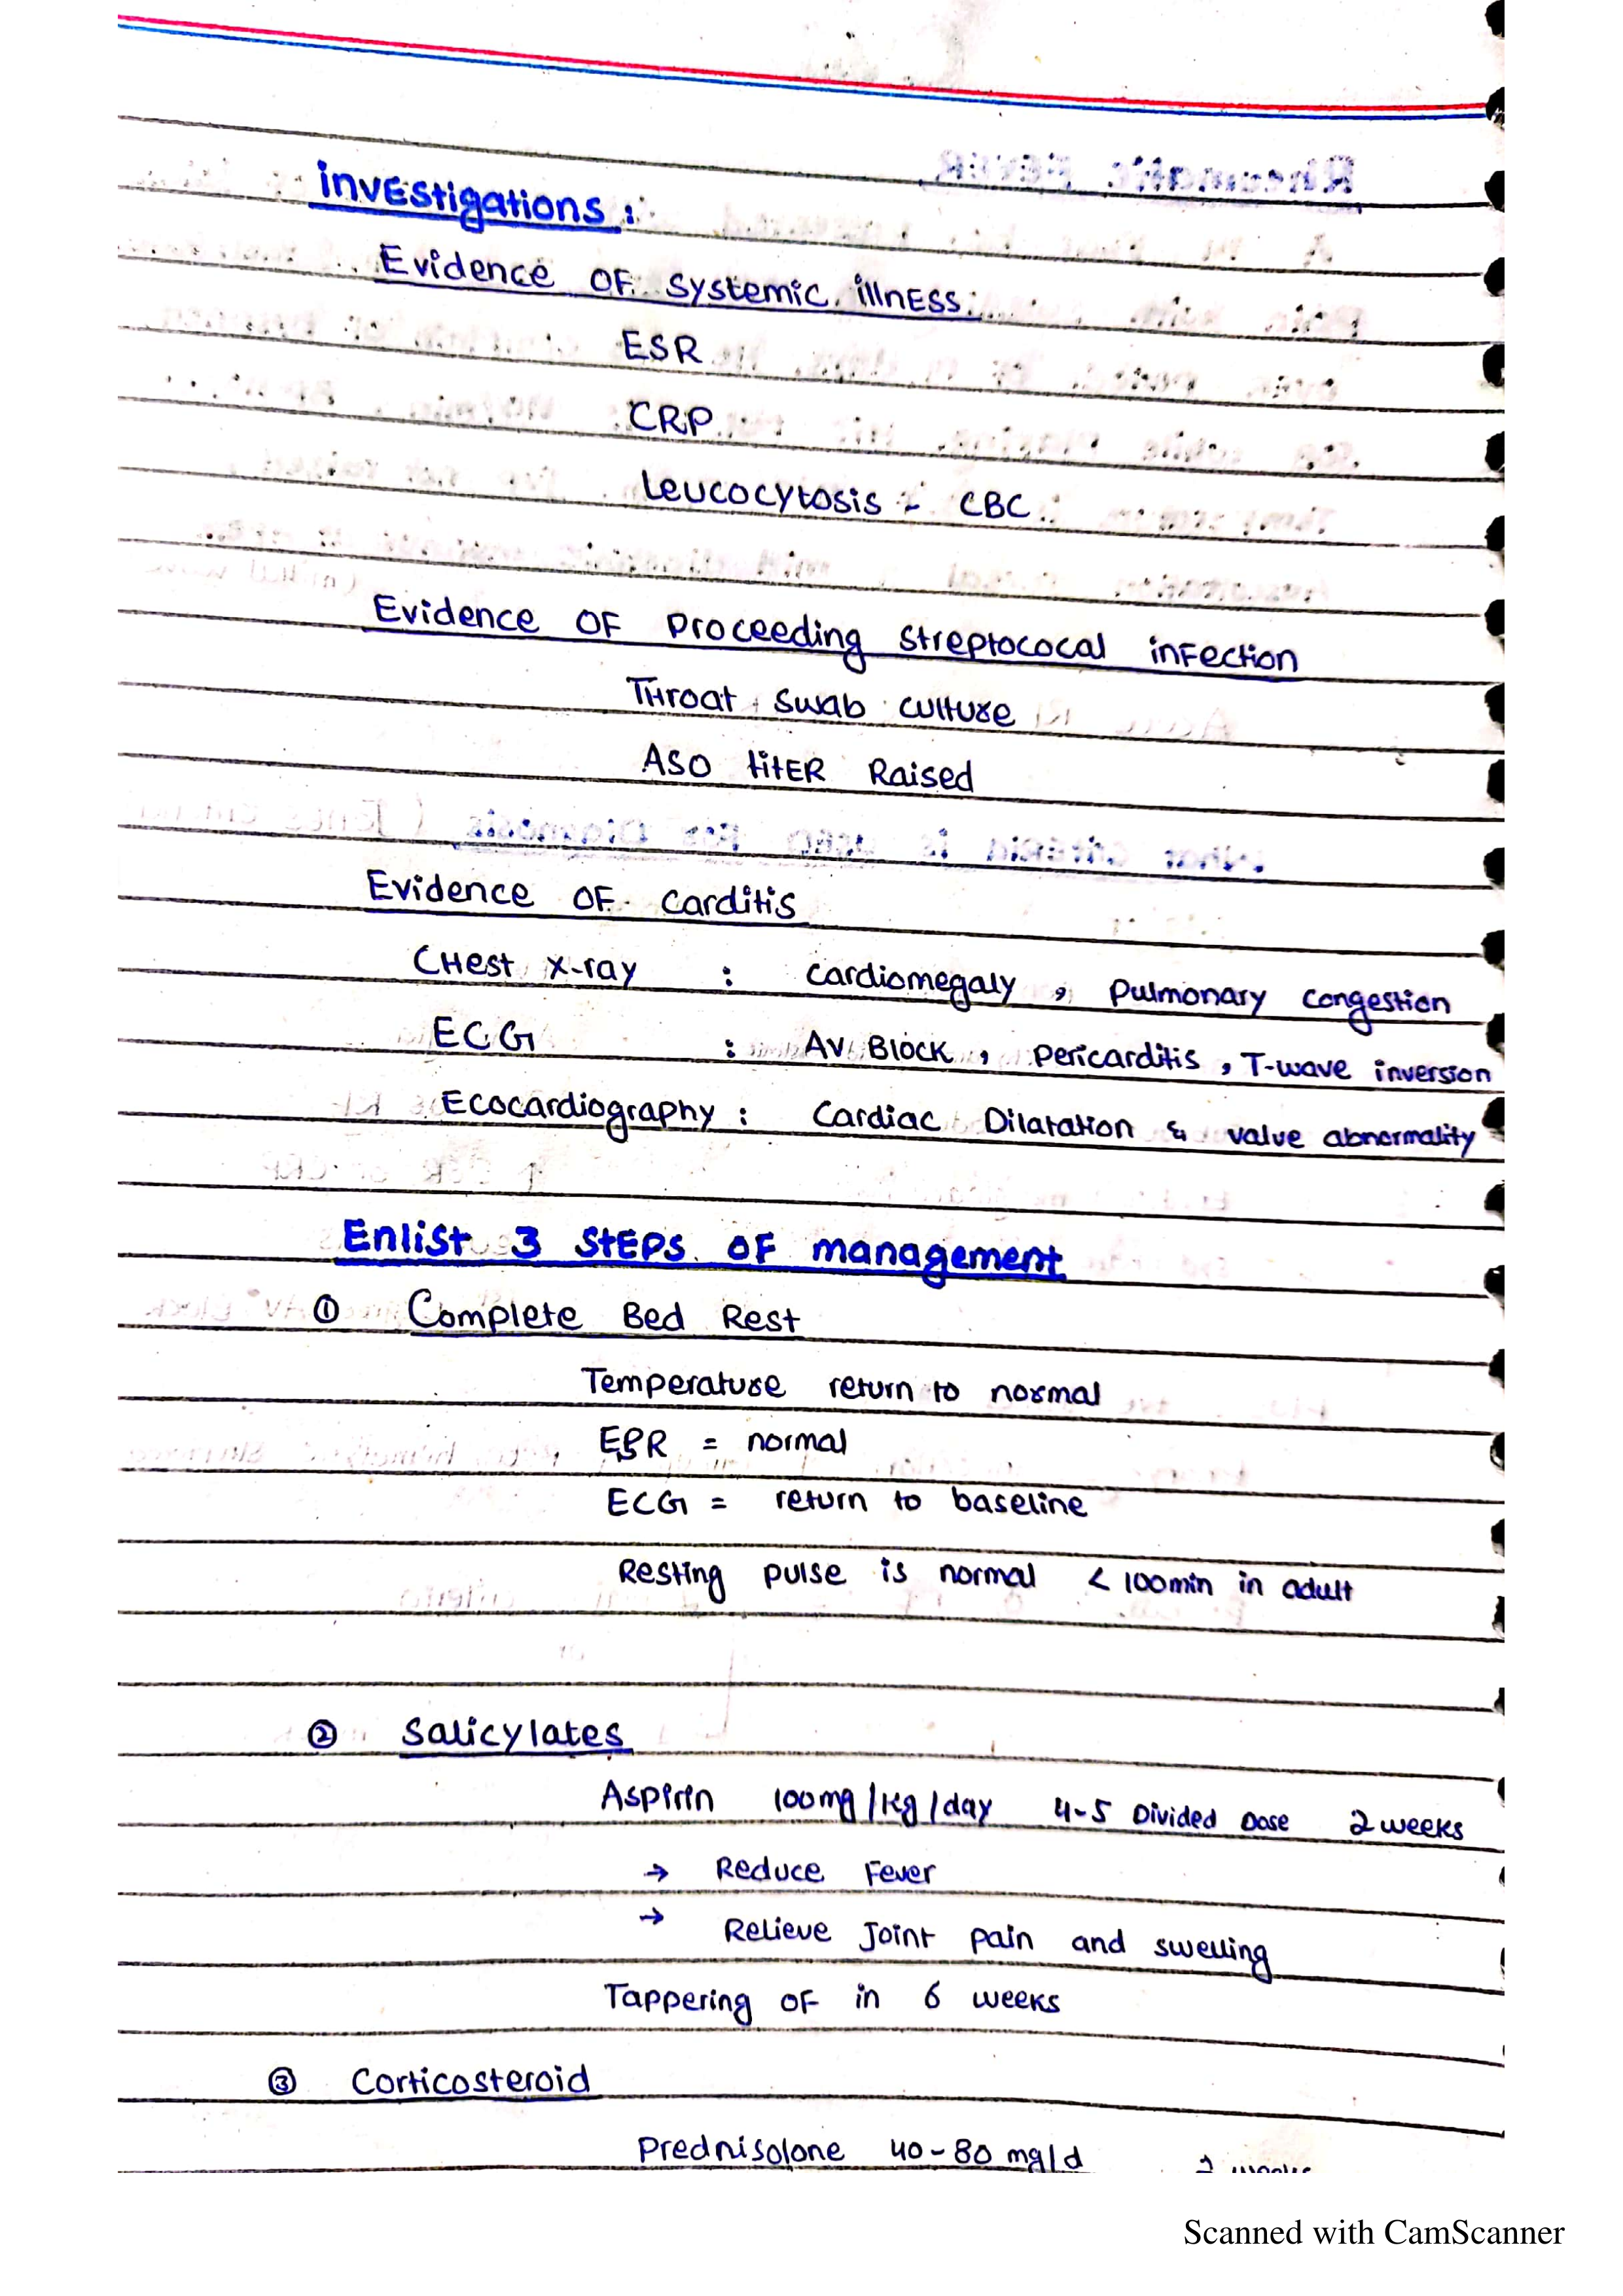 investigations :
Evidence OF systemic illness
ESR
CRP
Leucocytosis - CBC
Evidence OF Proceeding streptococal infection
Throat swab culture
ASO titer Raised
Evidence OF Carditis
Chest x-ray : Cardiomegaly , Pulmonary congestion
ECG : AV Block , Pericarditis , T-wave inversion
Ecocardiography : Cardiac Dilatation & value abnormality
Enlist 3 steps OF management
① Complete Bed Rest
Temperature return to normal
ESR = normal
ECG = return to baseline
Resting pulse is normal < 100min in adult
② Salicylates
Aspirin 100mg/kg/day 4-5 Divided Dose 2 weeks
→ Reduce Fever
→ Relieve Joint pain and swelling
Tappering OF in 6 weeks
③ Corticosteroid
Prednisolone 40-80 mg/d 2 weeks
Scanned with CamScanner